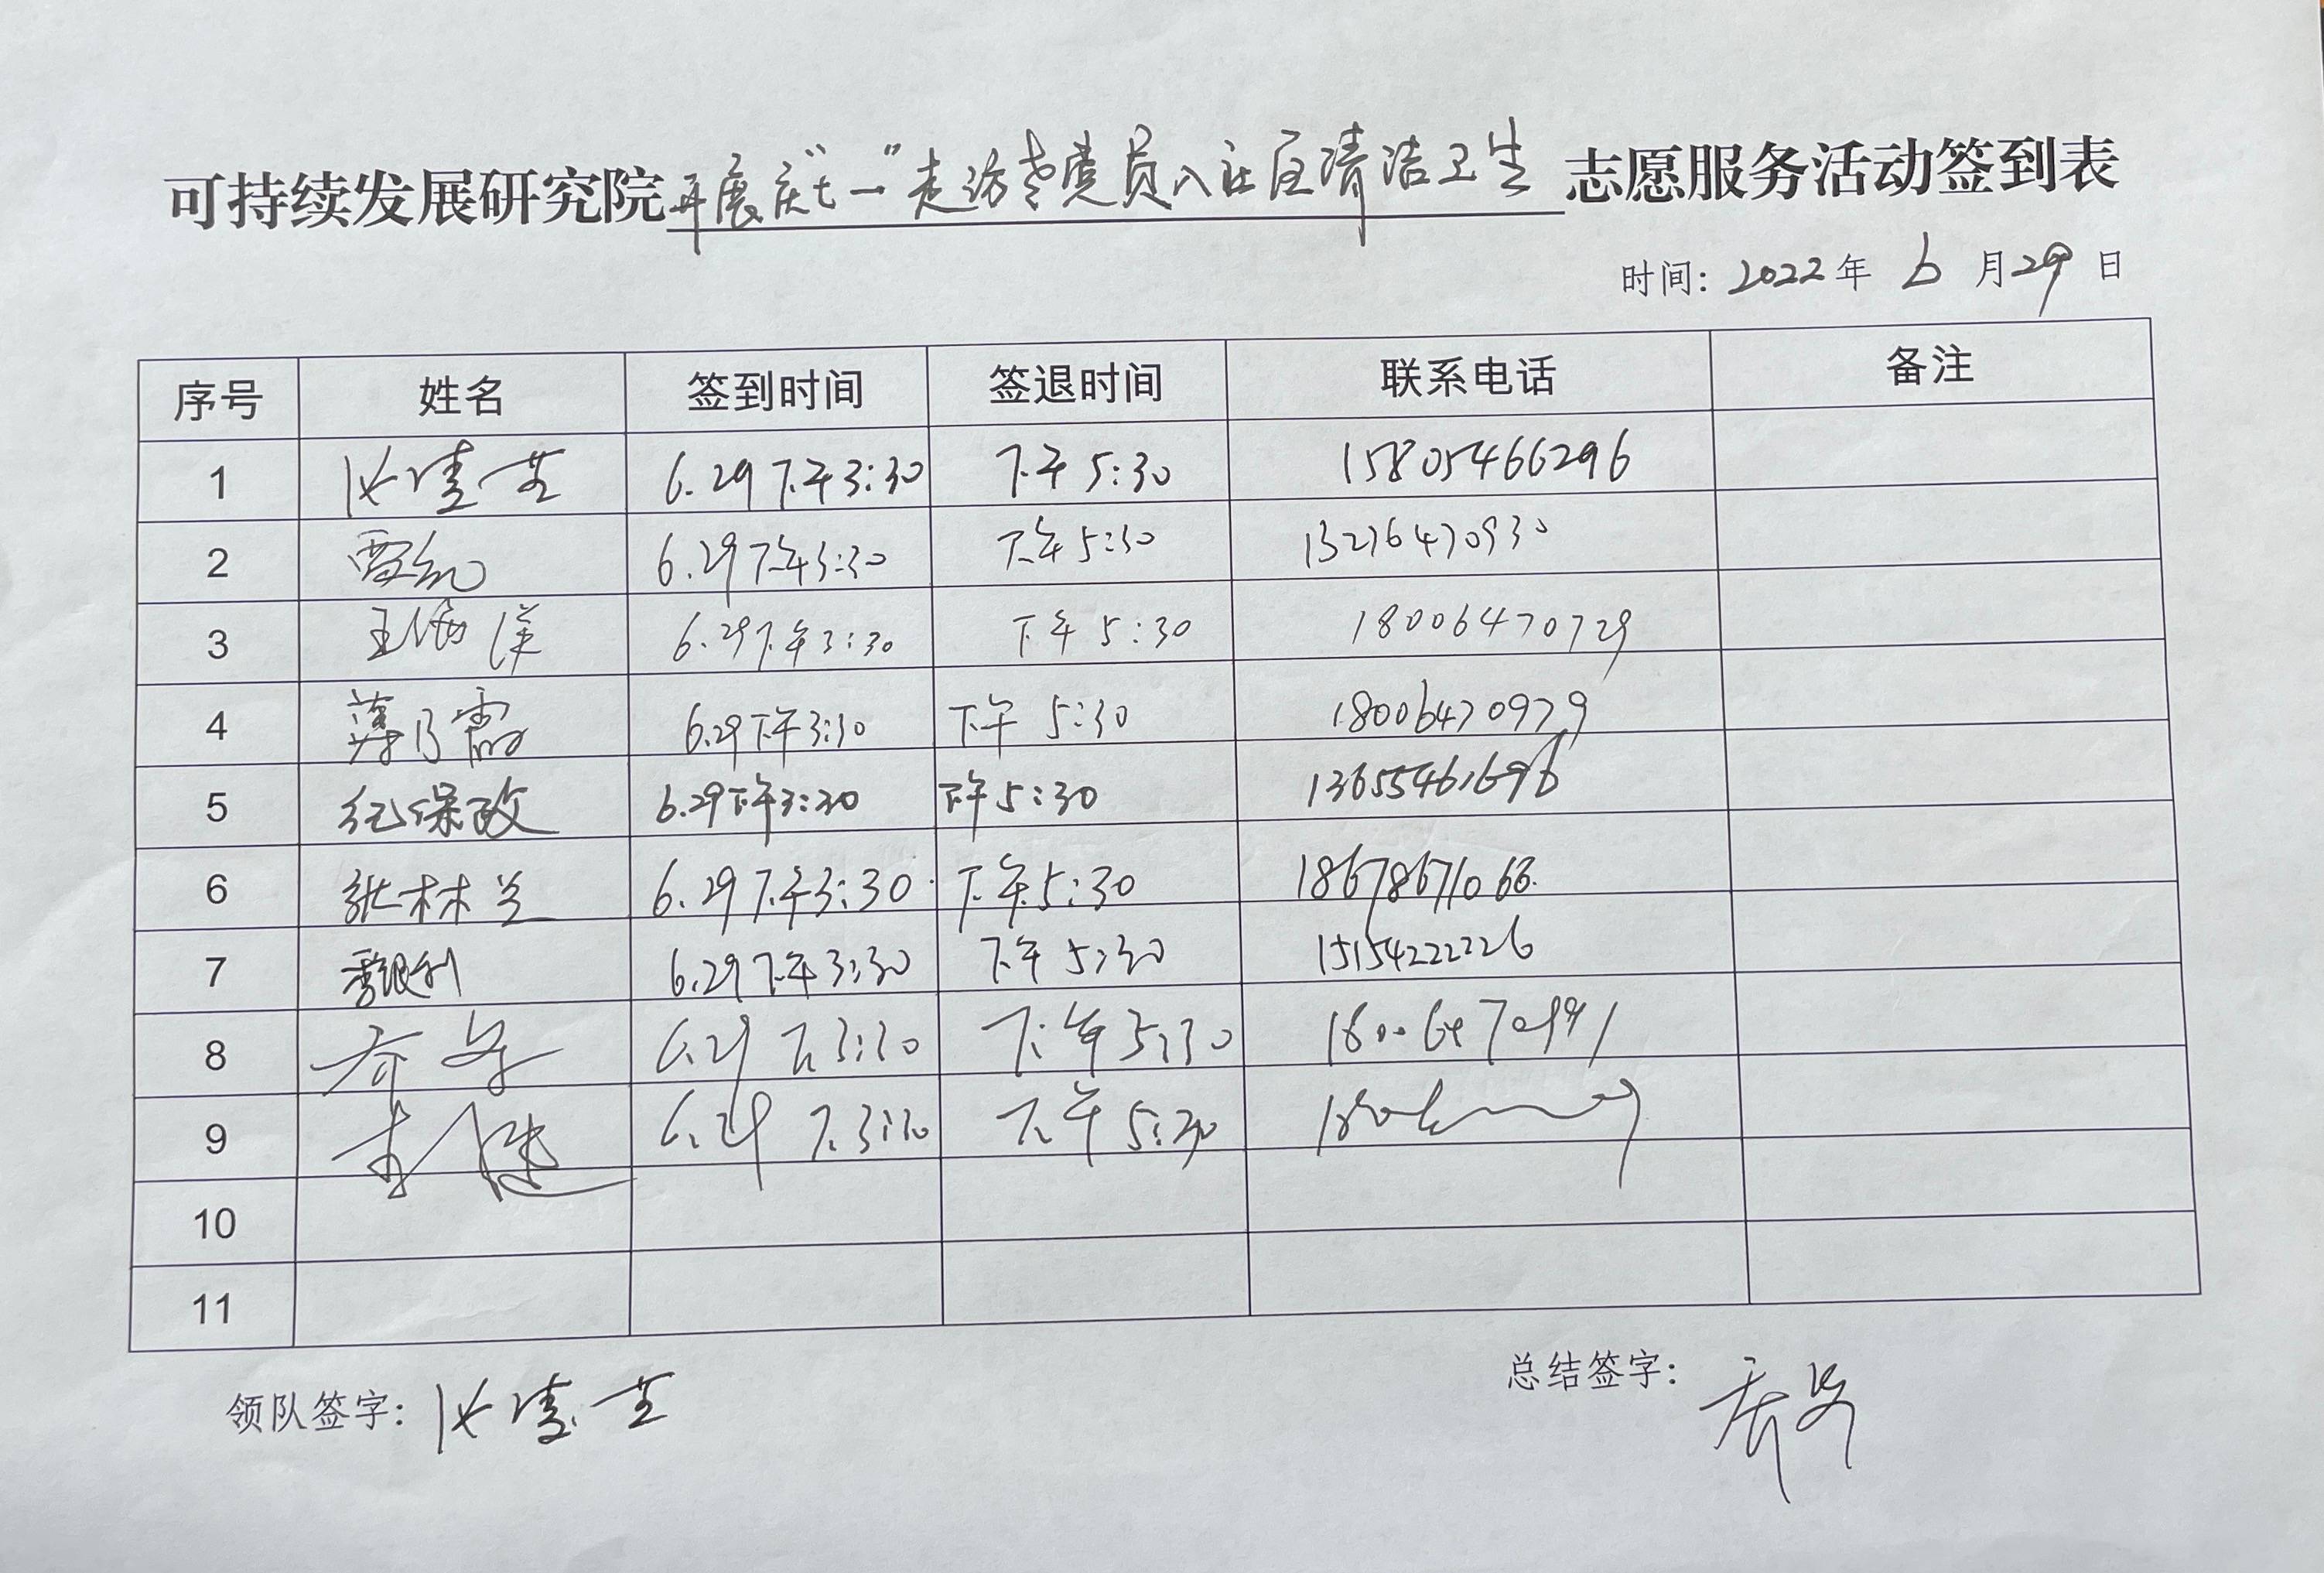 可持续发展研究院开展庆“七一”走访老党员入社区清洁卫生志愿服务活动签到表
时间：2022年 6 月29 日
序号 姓名 签到时间 签退时间 联系电话 备注
1 6.29下午3:30 下午5:30 15805466296
2 6.29下午3:30 下午5:30 13276470930
3 王海洋 6.29下午3:30 下午5:30 18006470729
4 薄乃霞 6.29下午3:30 下午 5:30 18006470979
5 纪保政 6.29下午3:30 下午5:30 13655461696
6 张林兰 6.29下午3:30 下午5:30 18678671068
7 6.29下午3:30 下午5:30 15154222226
8 6.29 下3:30 下午5:30
9 6.29 下3:30 下午5:30
10
11
领队签字：
总结签字：